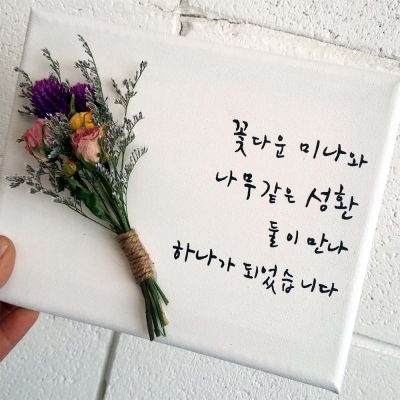 꽃다운 미나와
나무같은 성환
둘이 만나
하나가 되었습니다